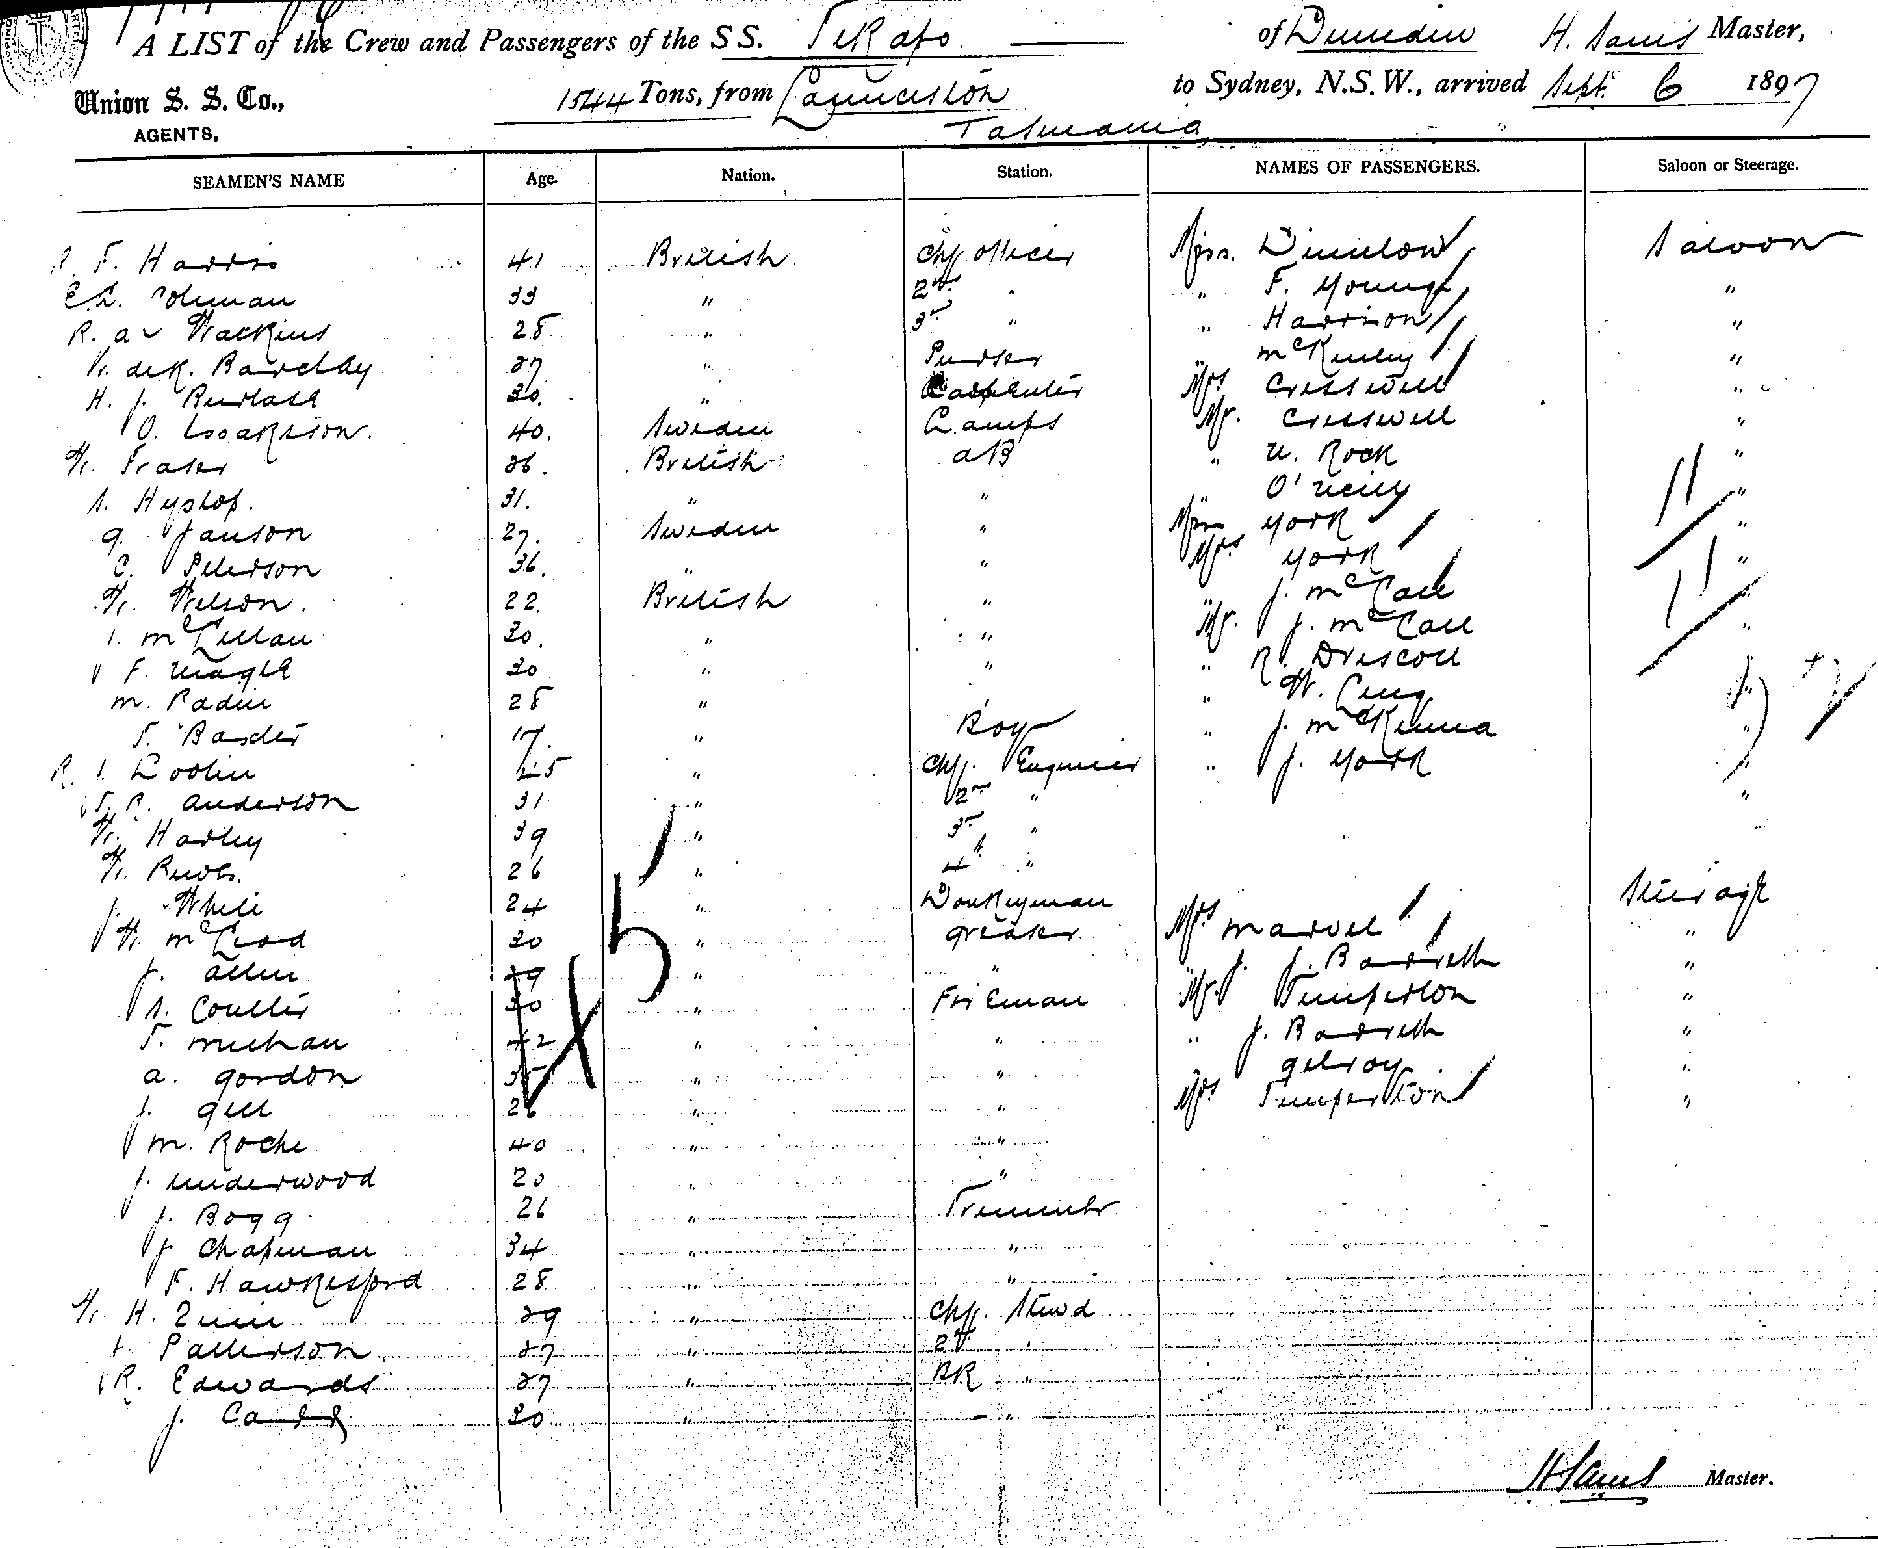 A LIST of the Crew and Passengers of the SS. Tekapo of Dunedin H. Sams Master,
Union S. S. Co., 1544 Tons, from Launceston to Sydney, N.S.W., arrived Sept. 6 1897
AGENTS, Tasmania
SEAMEN'S NAME Age. Nation. Station. NAMES OF PASSENGERS. Saloon or Steerage.
F. Harris 41 British Chf officer Miss Saloon
Coleman 33 " 2nd " " F. Young "
R. a Watkins 28 " 3rd " " Harrison "
W. deK. Barclay 27 " Purser " McKinley "
H. J. 30. " Carpenter Mrs Cresswell "
O. 40. Sweden Lamps Mr. Cresswell "
W. Fraser 26. British AB " Rock "
A. Hyslop. 31. " " " O'Reilly "
Janson 27. Sweden " Miss York "
C. Peterson 36. " " Mrs York "
W. Wilson. 22. British " " J. McCall
McLellan 30. " " Mr. J. McCall "
F. Nagle 30 " " " R. Driscoll
M. 28 " " W. "
T. Baxter 17. " Boy " J. McKenna "
R. 45 " Chf. Engineer " J. York "
R. Anderson 31 " 2nd " "
W. Harley 39 " 3rd "
W. 26 " 4th "
J. White 24 " Donkeyman Steerage
W. McLeod 30 " Greaser Mrs Marvel "
J. Allen 29 " " " J. Barrett "
A. Coulter 30 " Fireman Mr. Temperton "
T. Meehan 42 " " " J. Barrett "
A. Gordon 35 " " Gilroy "
J. Gill 26 " " Mrs Temperton "
M. Roche 40 " "
J. Underwood 20 " "
J. Bogg 26 " Trimmer
J. Chapman 34 " "
F. Hawkesford 28 " "
W. H. 29 " Chf. Stewd
Patterson 27 " 2nd "
R. Edwards 27 " BR "
J. Carr 30 " - "
H Sams Master.